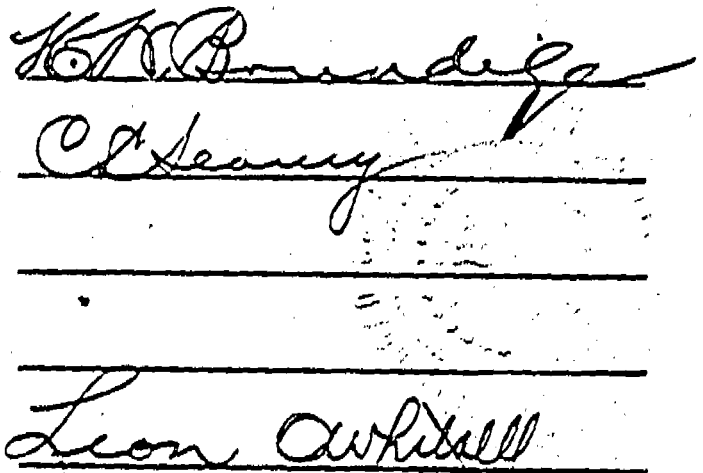 H. W. Brundige
C C Seavey
Leon O Whitsell